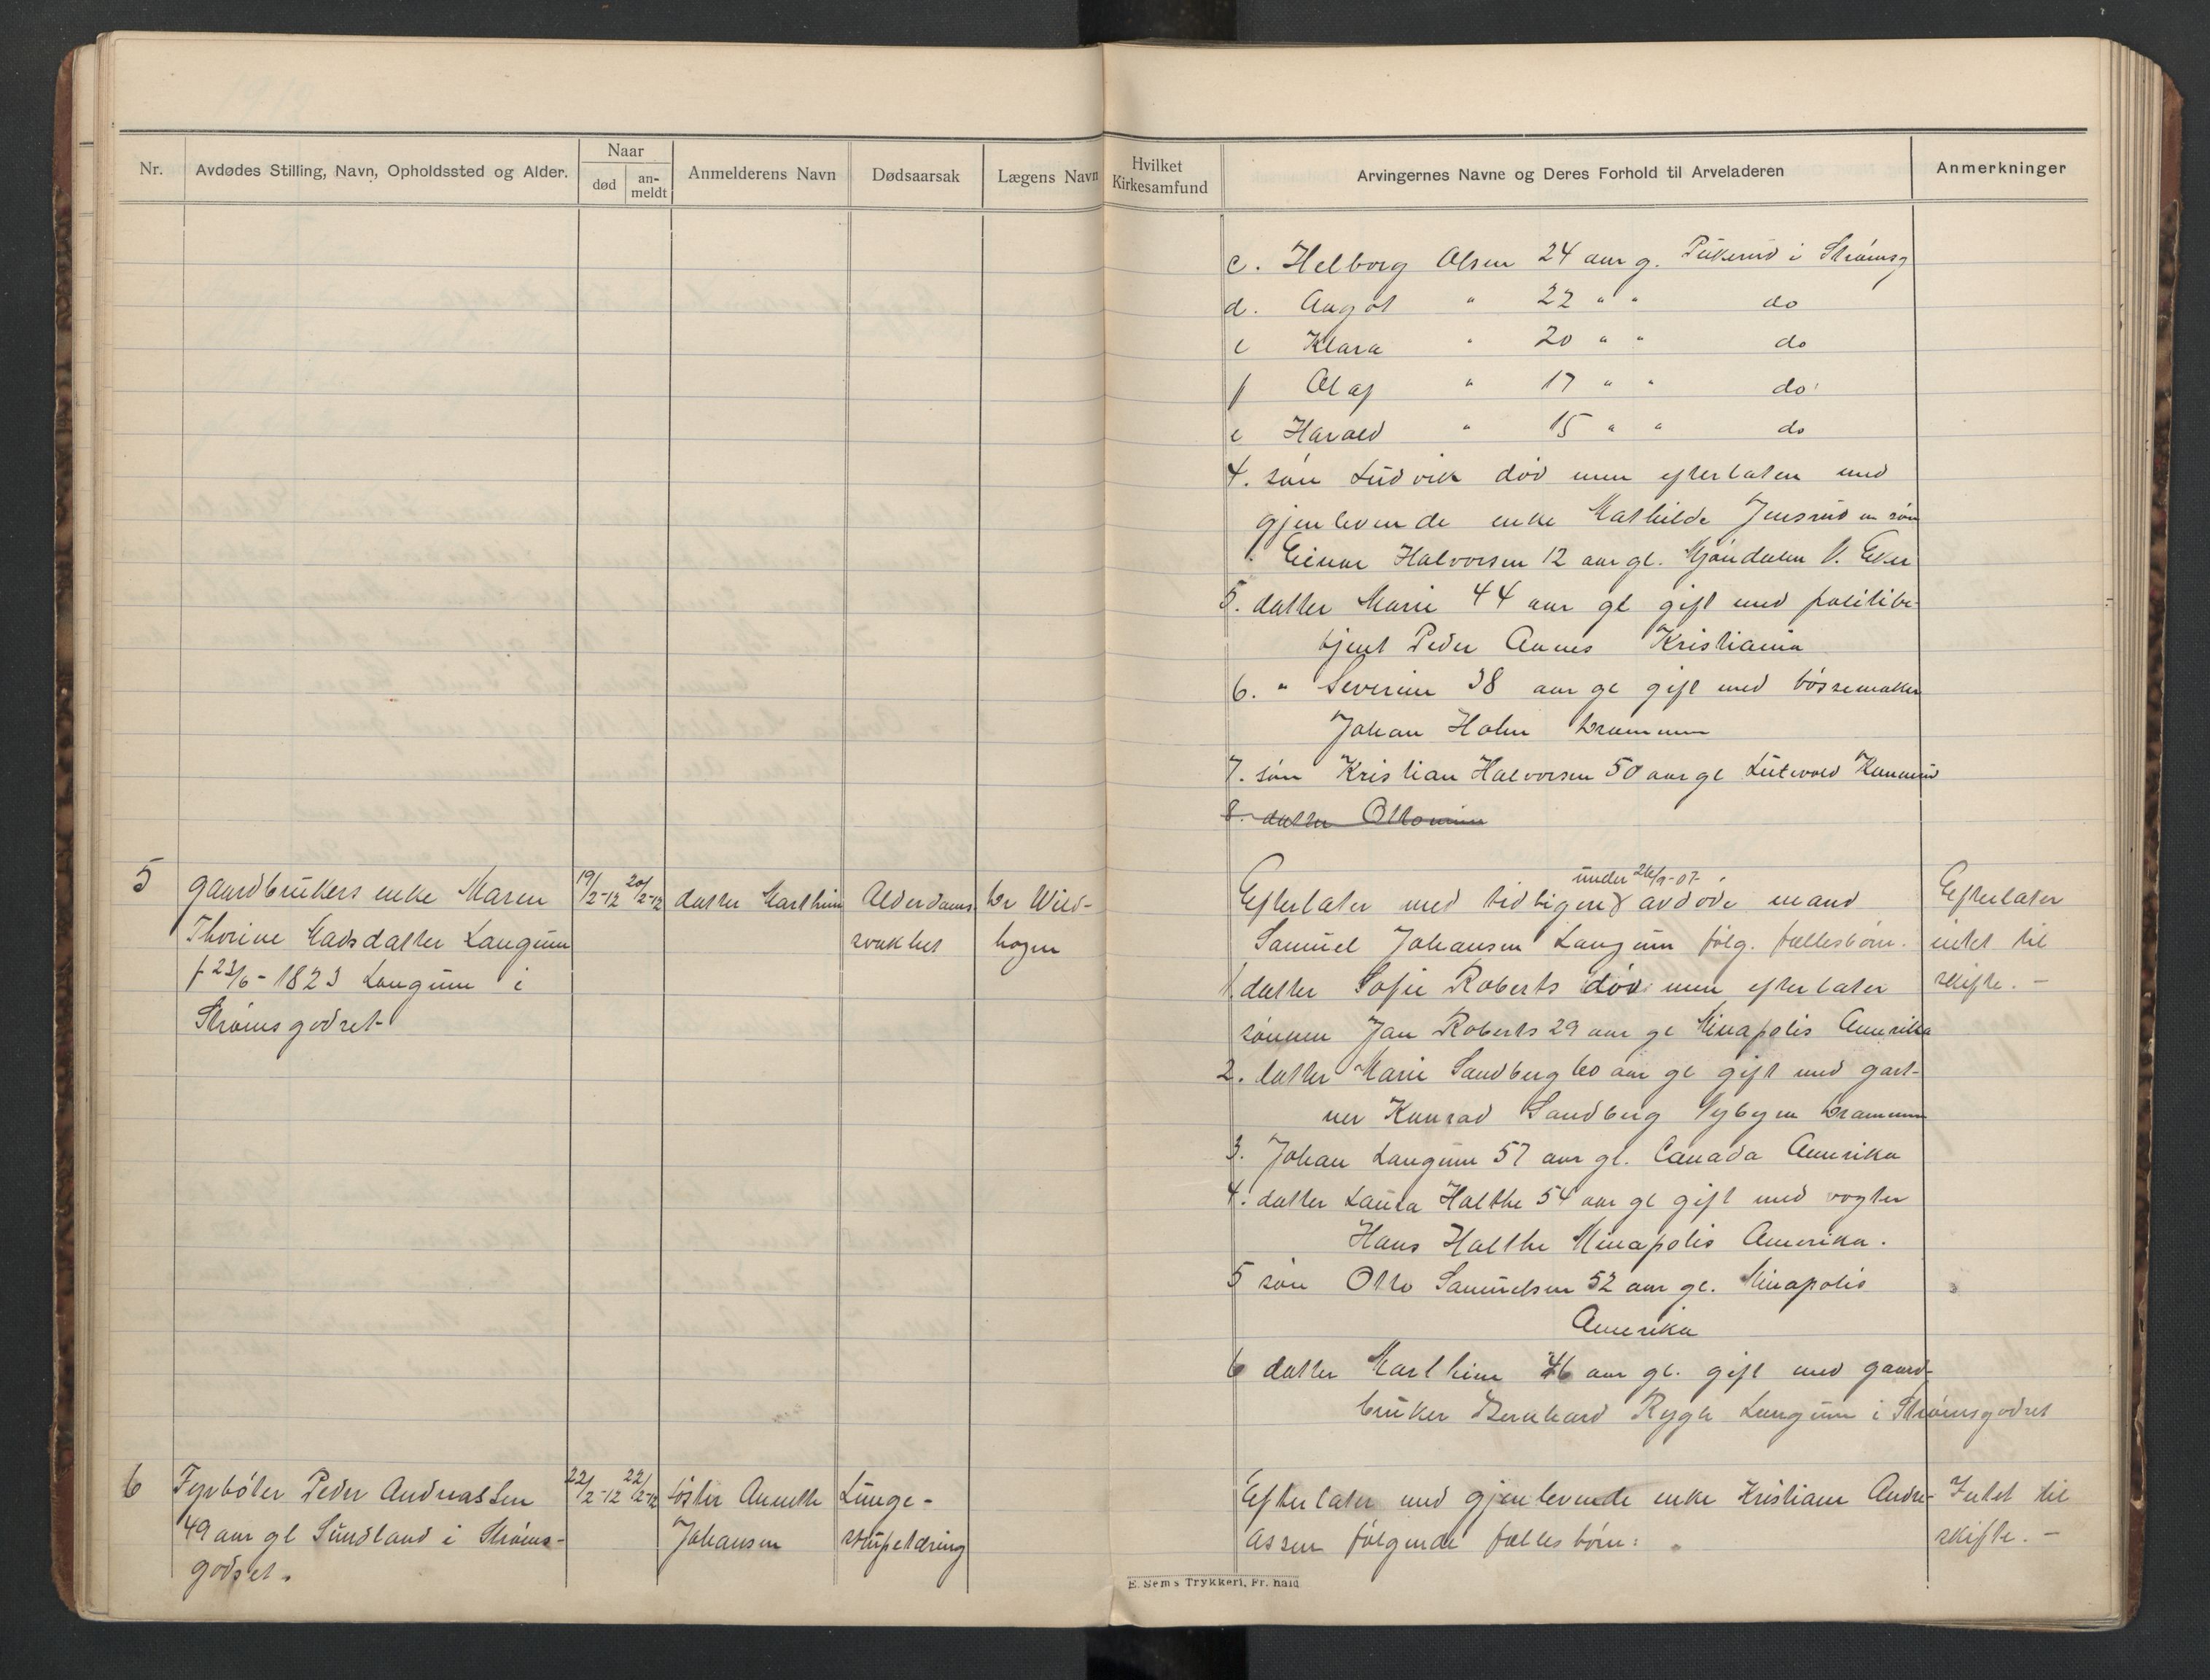 Nr.
Avdødes Stilling, Navn, Opholdssted og Alder.
Naar
død
an-
meldt
Anmelderens Navn
Dødsaarsak
Lægens Navn
Hvilket
Kirkesamfund
Arvingernes Navne og Deres Forhold til Arveladeren
Anmerkninger
c. Helborg Olsen 24 aar g. Pukerud i Strømsg
d. Aagot " 22 " " do
e Klara " 20 " " do
f Olaf " 17 " " do
e Harald " 15 " " do
4. søn Ludvik død men efterlaten med
gjenlevende enke Mathilde Jensrud en søn
Einar Halvorsen 12 aar gl. Mjøndalen N. Eker
5. datter Marie 44 aar gl gift med politibe-
tjent Peder Aanes Kristiania
6. " Severine 38 aar gl gift med bøssemaker
Johan Holm Drammen
7. søn Kristian Halvorsen 50 aar gl
8. datter Ottomine
5
gaardbrukers enke Maren
Thorine Madsdatter Langum
f 23/6-1823 Langum i
Strømsgodset
19/2-12
20/2-12
datter Marthine
Alderdoms
svakhet
Dr Wild-
hagen
under 26/9-07
Efterlater med tidligere avdøde mand
Samuel Johansen Langum følg. fællesbørn.
1. datter Sofie Roberts død men efterlater
sønnen Jan Roberts 29 aar gl Minapolis Amerika
2. datter Marie Sandberg 60 aar gl gift med gart-
ner Konrad Sandberg Nybyen Drammen
3. Johan Langum 57 aar gl. Canada Amerika
4. datter Laura Holthe 54 aar gl gift med vogter
Hans Holthe Minapolis Amerika.
5 søn Otto Samuelsen 52 aar gl. Minapolis
Amerika
6 datter Marthine 46 aar gl. gift med gaard-
bruker Bernhard Rygh Langum i Strømsgodset
Efterlater
intet til
skifte. -
6
Fyrbøter Peder Andreassen
49 aar gl Sundland i Strøms-
godset.
22/2-12
22/2-12
søster Annethe
Johansen
Lunge-
strupetæring
Efterlater med gjenlevende enke Kristiane Andre-
assen følgende fællesbørn:
Intet til
skifte. -
E. Sems Trykkeri, Fr.hald